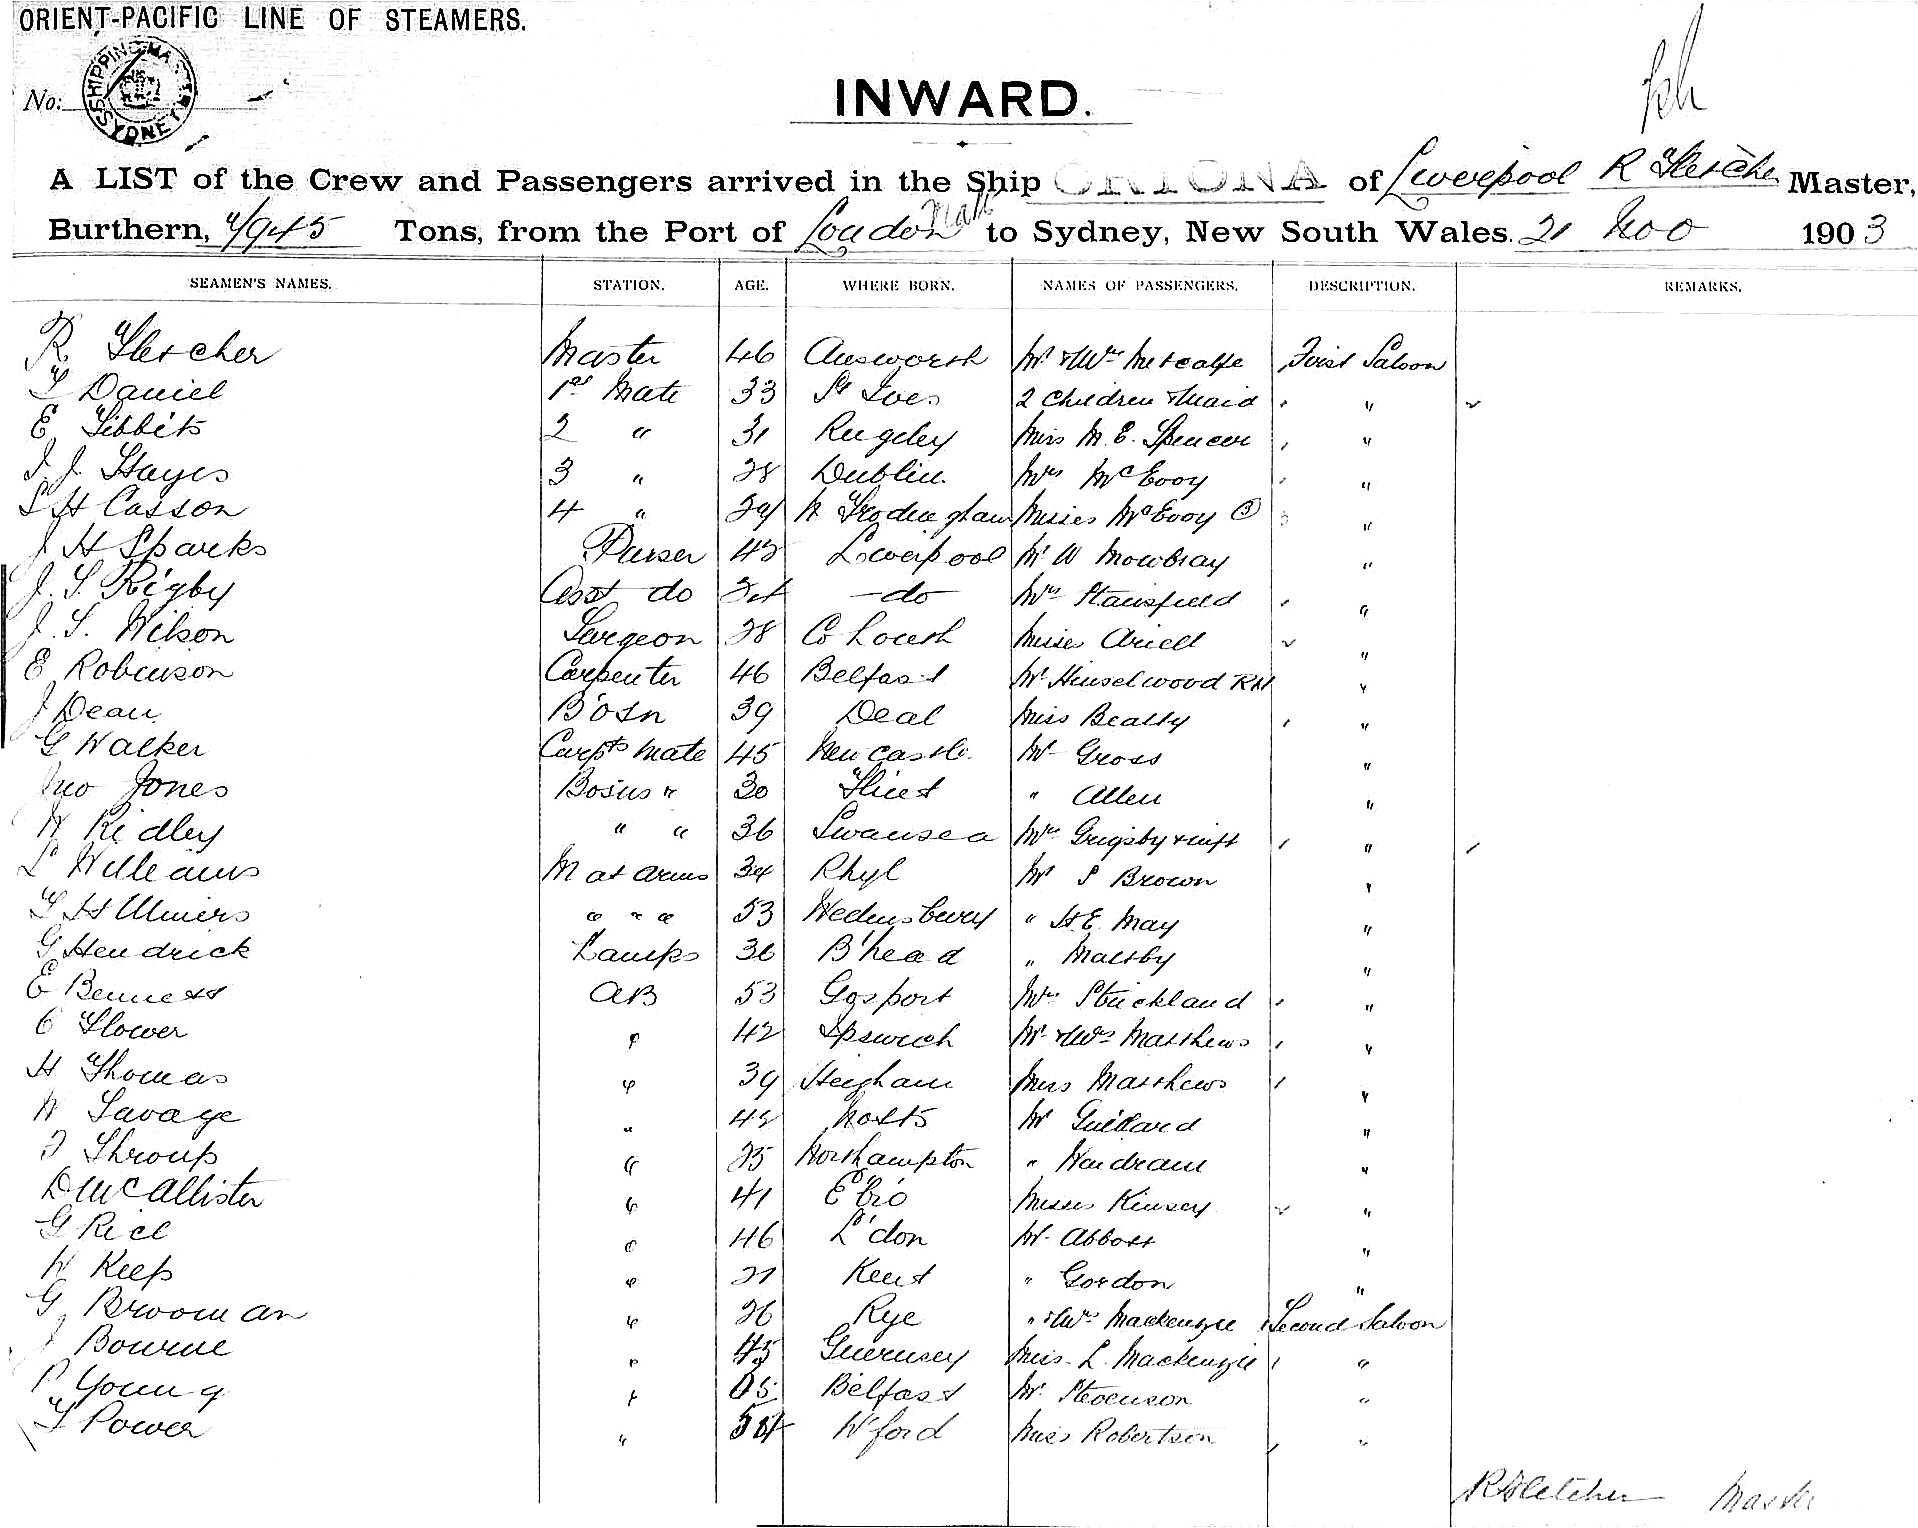 ORIENT-PACIFIC LINE OF STEAMERS.
No:
SHIPPING MASTER SYDNEY
INWARD.
A LIST of the Crew and Passengers arrived in the Ship ORIONA of Liverpool R Fletcher Master,
Burthern, 4/945 Tons, from the Port of London to Sydney, New South Wales. 21 Nov 1903
SEAMEN'S NAMES. STATION. AGE. WHERE BORN. NAMES OF PASSENGERS. DESCRIPTION. REMARKS.
R. Fletcher Master 46 Mr & Mrs Metcalfe First Saloon
T Daniel 1st Mate 33 St Ives 2 Children & Maid "
E Tibbits 2 " 31 Rugeley Miss M. E. Spencer "
J. J. Hayes 3 " 28 Dublin Mrs McEvoy "
S H Casson 4 " 24 N Frodingham Misses McEvoy (3) "
J H Sparks Purser 43 Liverpool Mr W Mowbray "
J. S. Rigby Asst do 24 - do - Mrs Stansfield "
J. S. Wilson Surgeon 28 Co Louth Misses Ariell "
E Robinson Carpenter 46 Belfast Mr Hinselwood "
J Dean Bosn 39 Deal Miss Beatty "
G Walker Carpts Mate 45 Newcastle Mr Gross "
Jno Jones Bosuns " 30 Flint " Allen "
W Ridley " " 36 Swansea Mrs Grigsby & inft "
S Williams M at Arms 34 Rhyl Mr S Brown "
T H " " " 53 Wednesbury " H. E. May "
G Hendrick Lamps 36 B'head " Maltby "
E Bennett AB 53 Gosport Mrs Strickland "
C Flower " 42 Ipswich Mr & Mrs Matthews "
H Thomas " 39 Heigham Miss Matthews "
W Savage " 42 Notts Mr Guillard "
F Throup " 25 Northampton " "
D McCallister " 41 E'bro Misses Kinsey "
G Rice " 46 L'don Mr Abbott "
W Keep " 21 Kent " Gordon "
G. Brooman " 26 Rye " & Mrs Mackenzie Second Saloon
J Bourne " 45 Guernsey Miss L. Mackenzie "
P Young " Belfast Mr Stevenson "
T Power " W'ford Miss Robertson "
R Fletcher Master